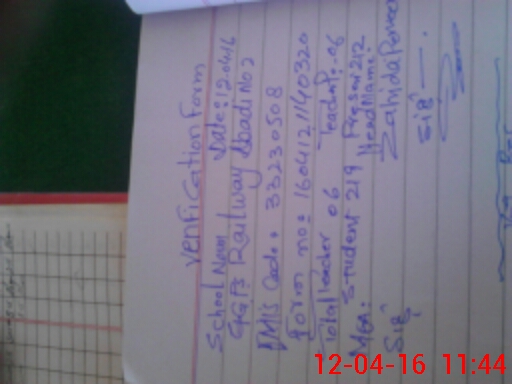 Verification Form
School Name Date: 12-04-16
GGPS Railway Abadi No 2
EMIS Code: 33230508
Form no: 1604121140320
Total Teacher 06 Teach P: 06
Student 219 Present 212
MEA: Head Name:
Zahida Parveen
Sig Sig
12-04-16 11:44